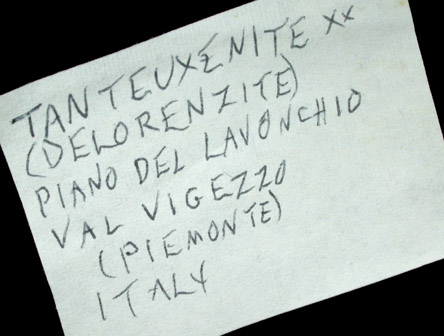 TANTEUXENITE xx
(DELORENZITE)
PIANO DEL LAVONCHIO
VAL VIGEZZO
(PIEMONTE)
ITALY